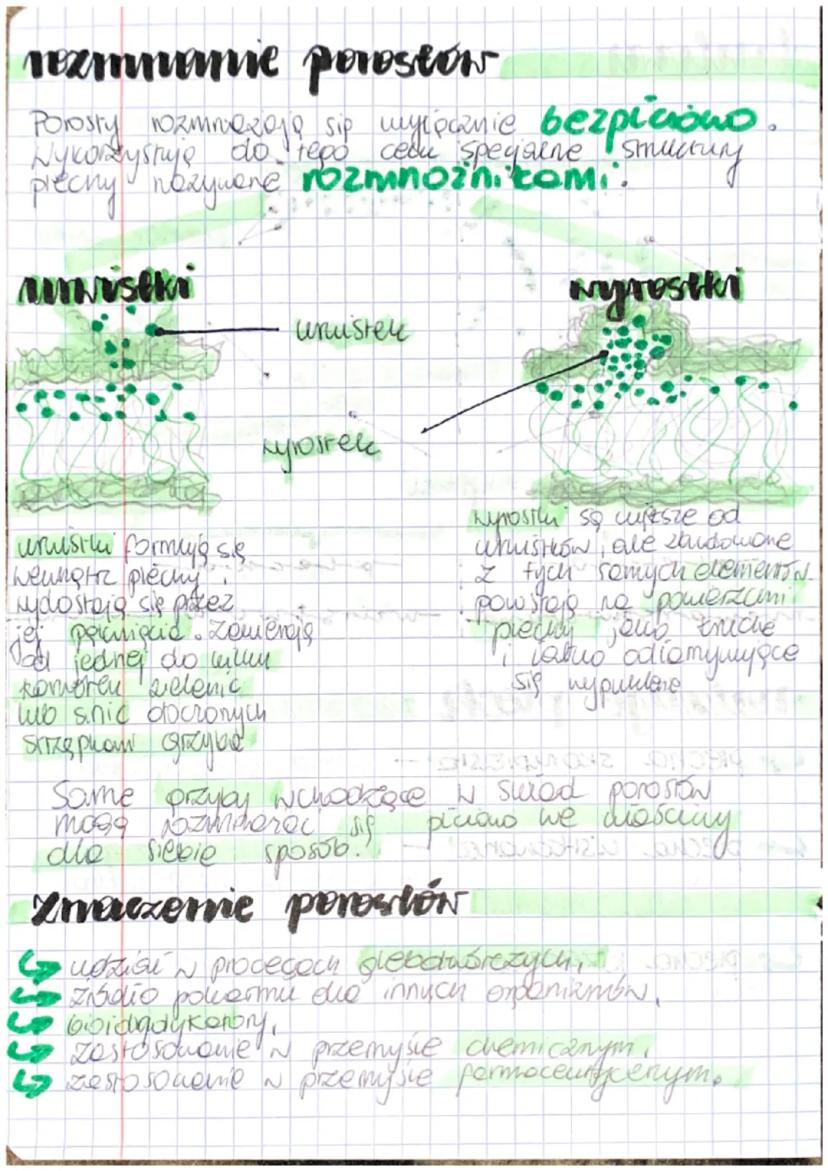 rozmnanie porostów
Porosty rozmnażają się wyłącznie bezpłciowo.
Wykorzystują do tego celu specjalne struktury
plechy nazywane rozmnóżnikami.
urwistki
wyrostki
urwistek
wyrostek
urwistki formują się
wewnątrz plechy,
wydostają się przez
jej pęknięcia. Zawierają
od jednej do kilku
komórek zielenic
lub sinic otoczonych
strzępkami grzyba
wyrostki są większe od
urwistków, ale zbudowane
z tych samych elementów.
powstają na powierzchni
plechy jako kruche
i łatwo odłamywujące
się wypukłne
Same grzyby wchodzące w skład porostów
mogą rozmnarać się płciowo we właściwy
dla siebie sposób.
Znaczenie porostów
udział w procesach glebotwórczych,
źródło pokarmu dla innych organizmów,
bioidndykatory,
zastosowanie w przemyśle chemicznym,
zastosowanie w przemyśle farmaceutycznym.